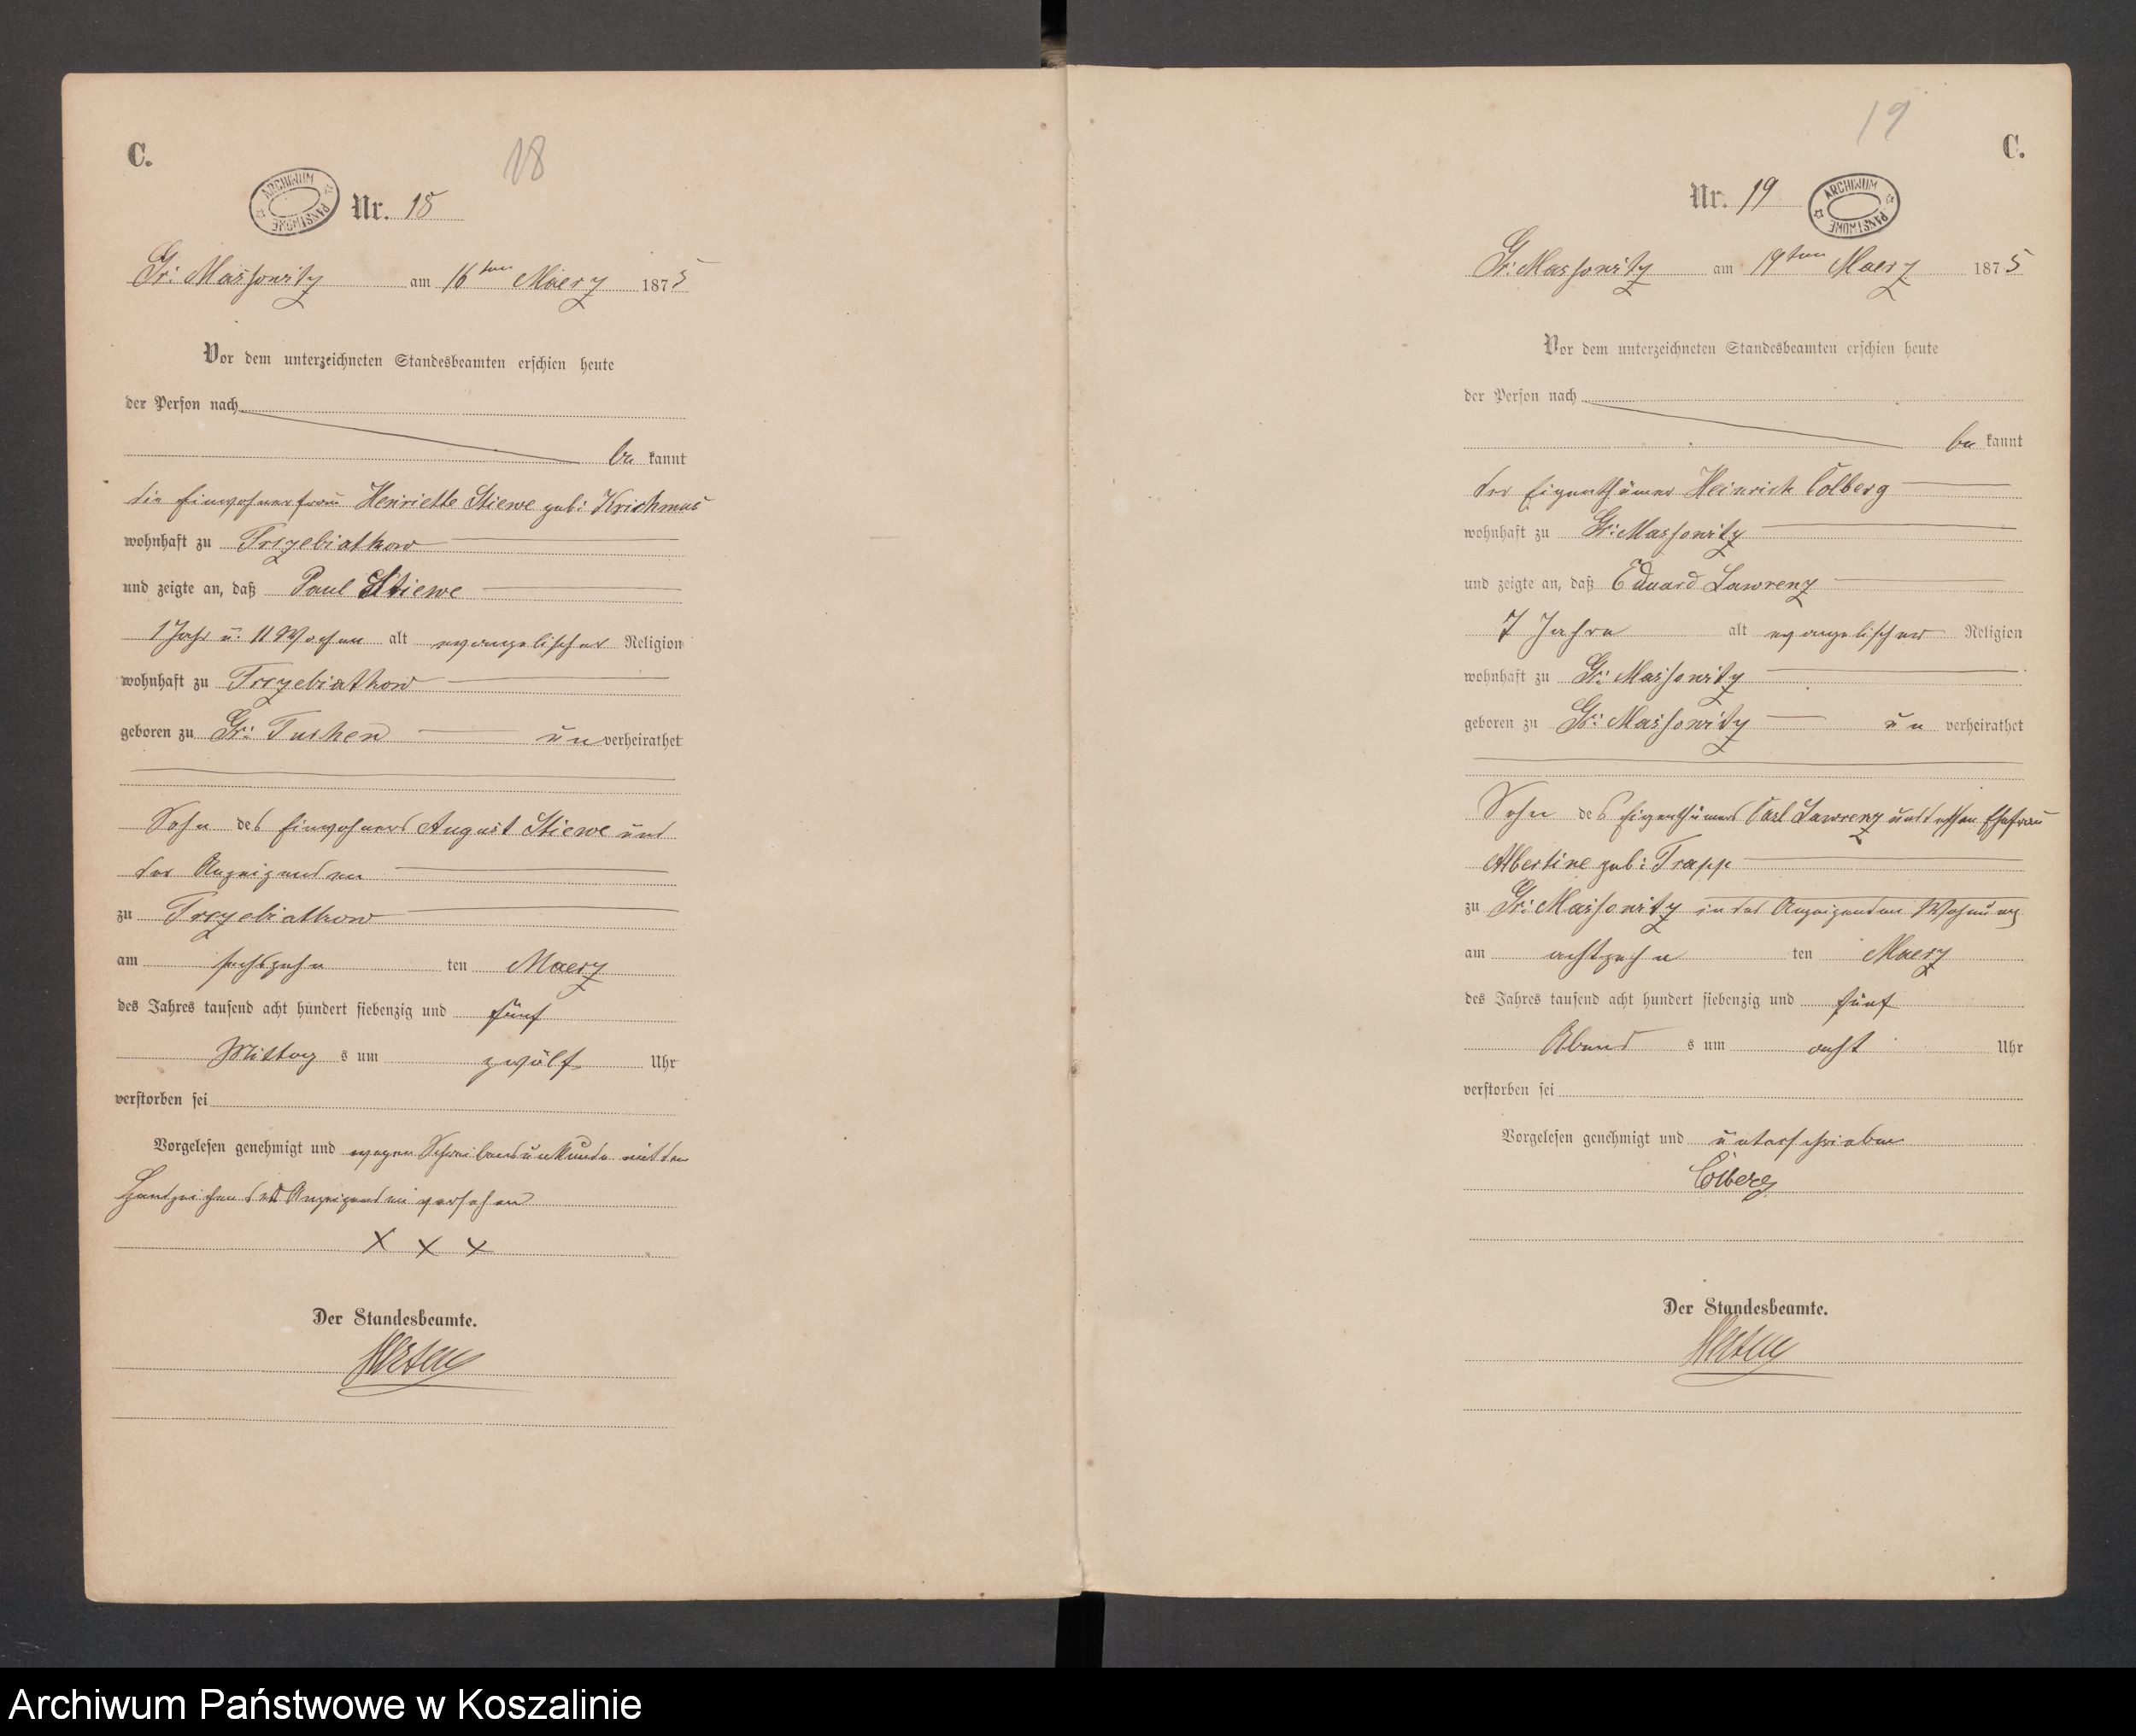 C.
18
ARCHIWUM PAŃSTWOWE
Nr. 18
Gr: Massowitz am 16ten Maerz 1875
Vor dem unterzeichneten Standesbeamten erschien heute
der Person nach
be kannt
die Einwohnerfrau Henriette Stiewe geb: Krischmus
wohnhaft zu Trzebiatkow
und zeigte an, daß Paul Stiewe
1 Jahr u. 11 Wochen alt evangelischer Religion
wohnhaft zu Trzebiatkow
geboren zu Gr: Tuchen un verheirathet
Sohn des Einwohners August Stiewe und
der Anzeigenden
zu Trzebiatkow
am sechszehn ten Maerz
des Jahres tausend acht hundert siebenzig und fünf
Mittag s um zwölf Uhr
verstorben sei
Vorgelesen genehmigt und wegen Schreibensunkunde mit dem
Handzeichen der Anzeigenden versehen
X X X
Der Standesbeamte.
19
C.
Nr. 19
ARCHIWUM PAŃSTWOWE
Gr: Massowitz am 19ten Maerz 1875
Vor dem unterzeichneten Standesbeamten erschien heute
der Person nach
be kannt
der Eigenthümer Heinrich Colberg
wohnhaft zu Gr: Massowitz
und zeigte an, daß Eduard Lawrenz
7 Jahre alt evangelischer Religion
wohnhaft zu Gr: Massowitz
geboren zu Gr: Massowitz un verheirathet
Sohn des Eigenthümers Carl Lawrenz und dessen Ehefrau
Albertine geb: Trapp
zu Gr: Massowitz in des Anzeigenden Wohnung
am achtzehn ten Maerz
des Jahres tausend acht hundert siebenzig und fünf
Abend s um acht Uhr
verstorben sei
Vorgelesen genehmigt und unterschrieben
Colberg
Der Standesbeamte.
Archiwum Państwowe w Koszalinie